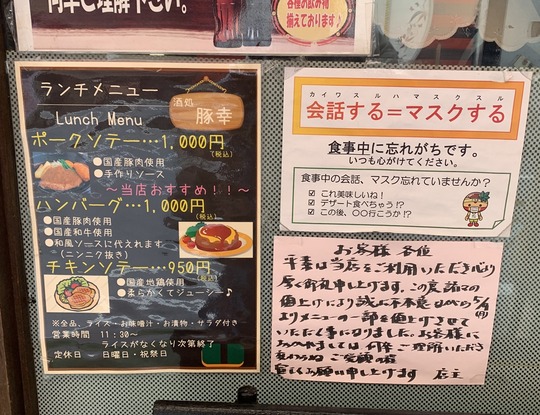 何卒ご理解下さい。
各種の飲み物
揃えております♪
ランチメニュー
Lunch Menu
酒処
豚幸
ポークソテー…1,000円
(税込)
●国産豚肉使用
●手作りソース
～当店おすすめ！！～
ハンバーグ…1,000円
(税込)
●国産豚肉使用
●国産和牛使用
●和風ソースに代えれます
(ニンニク抜き)
チキンソテー…950円
(税込)
●国産地鶏使用
●柔らかくてジューシー♪
※全品、ライス・お味噌汁・お漬物・サラダ付き
営業時間　11：30～
ライスがなくなり次第終了
定休日　日曜日・祝祭日
カイワスルハマスクスル
会話する＝マスクする
食事中に忘れがちです。
いつも心がけてください。
食事中の会話、マスク忘れていませんか？
☑ これ美味しいね！
☑ デザート食べちゃう！？
☑ この後、〇〇行こうか！？
お客様 各位
平素は当店をご利用いただき心より
厚く御礼申し上げます。この度諸々の
値上げにより誠に不本意ながら
よりメニューの一部を値上げさせて
いただく事になりました。お客様に
何卒ご理解いただき
申し上げます 店主